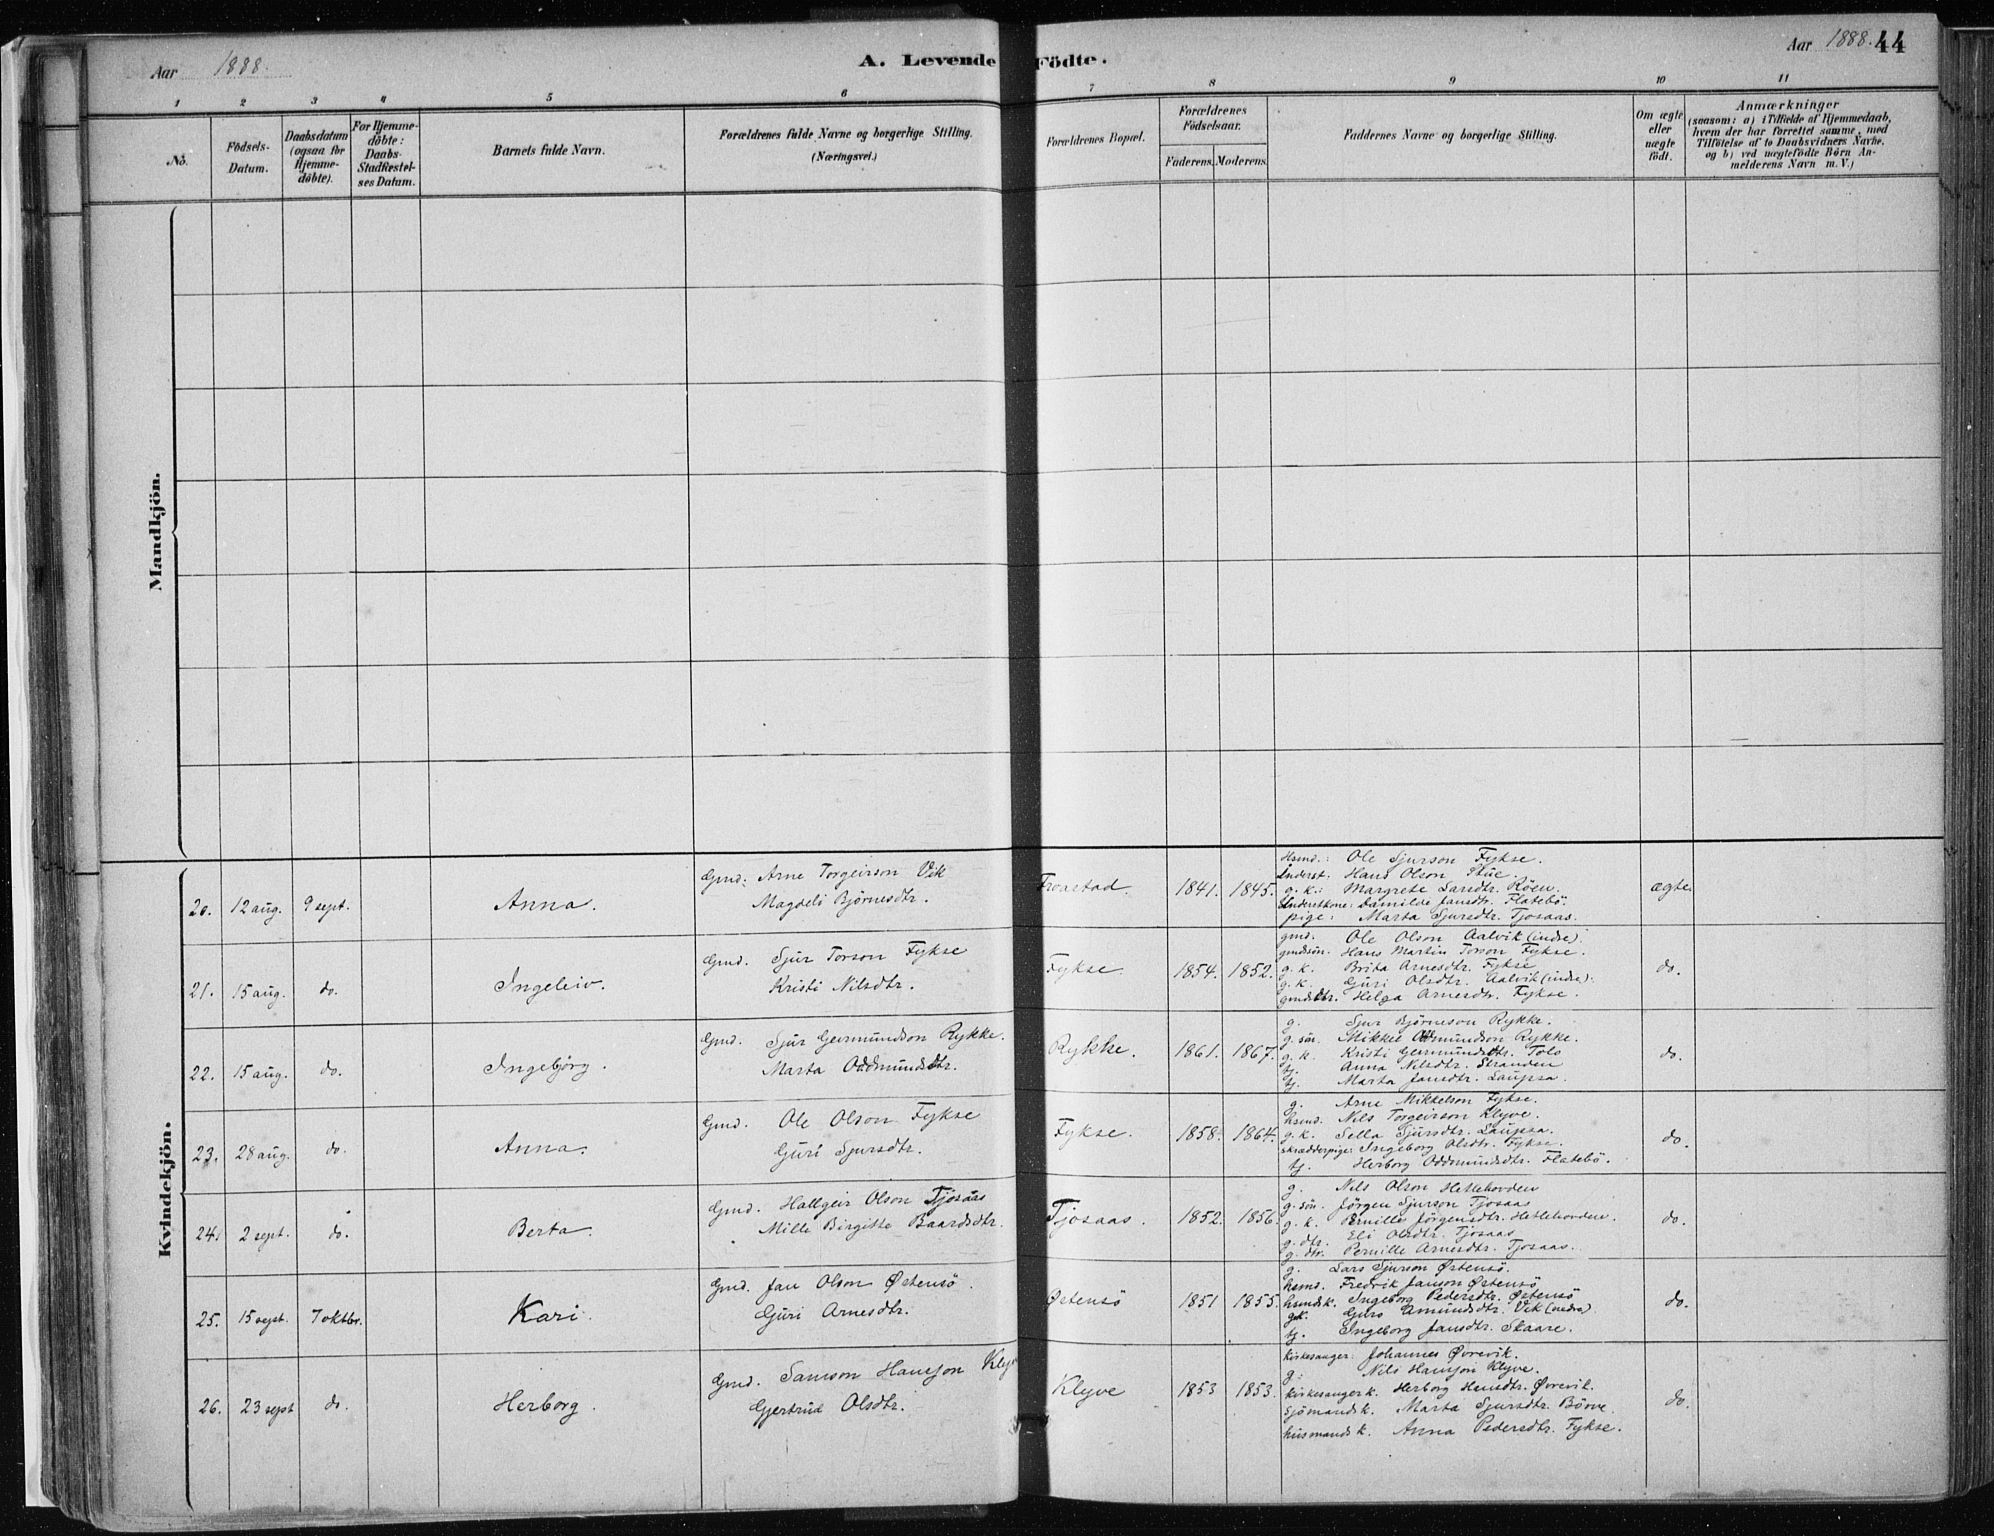 Aar 1888.
A. Levende Födte.
Aar 1888. 44
1 2 3 4 5 6 7 8 9 10 11
No. Födsels-Datum. Daabsdatum (ogsaa for Hjemme-döbte). For Hjemme-döbte: Daabs-Stadfæstel-ses Datum. Barnets fulde Navn. Forældrenes fulde Navne og borgerlige Stilling. (Næringsvei.) Forældrenes Bopæl. Forældrenes Födselsaar. Faderens. Moderens. Faddernes Navne og borgerlige Stilling. Om ægte eller uægte födt. Anmærkninger (saasom: a) i Tilfælde af Hjemmedaab, hvem der har forrettet samme, med Tilföielse af to Daabsvidners Navne, og b) ved uægtefödte Börn An-melderens Navn m. V.)
Mandkjön.
Kvindekjön.
20. 12 aug. 9 sept. Anna. Gmd. Arne Torgeirson Vik
Magdeli Bjørnesdtr.
Froastad. 1841. 1845.
Hsmd.: Ole Sjurson Fykse.
Inderst: Hans Olson Stue.
g. k.: Margrete Larsdtr. Röen.
Inderstkone: Damilde Jansdtr. Flatebö.
pige: Marta Sjursdtr. Tjosaas.
ægte.
21. 15 aug. do. Ingeleiv. Gmd. Sjur Torson Fykse
Kristi Nilsdtr.
Fykse 1854. 1852.
gmd. Ole Olson Aalvik (indre).
gmdsön. Hans Martin Torson Fykse.
g. k. Brita Arnesdtr. Fykse
g. k. Guri Olsdtr. Aalvik (indre).
gmdsdtr. Helga Arnesdtr. Fykse.
do.
22. 15 aug. do. Ingebjörg. Gmd. Sjur Germundson Rykke.
Marta Oddmundsdtr.
Rykke. 1861. 1867.
g. Sjur Bjørneson Rykke.
g. sön. Mikkel Oddmundson Rykke.
g. k. Kristi Germundsdtr. Tolo
tj. Anna Nilsdtr. Stranden
tj. Marta Jansdtr. Laupsa.
do.
23. 28 aug. do. Anna. Gmd. Ole Olson Fykse
Guri Sjursdtr.
Fykse. 1858. 1864.
g. Arne Mikkelson Fykse.
hsmd. Nils Torgeirson Klyve.
g. k. Sella Sjursdtr. Laupsa.
skrædderpige: Ingeborg Olsdtr. Fykse.
tj. Herborg Oddmundsdtr. Flatebö.
do.
24. 2 sept. do. Berta. Gmd. Hallgeir Olson Tjosaas
Mille Birgitte Baardsdtr.
Tjosaas. 1852. 1856.
g. Nils Olson Hetlehorden
g. sön. Jörgen Sjurson Tjosaas
g. k. Pernille Jörgensdtr. Hetlehorden.
g. dtr. Eli Olsdtr. Tjosaas
g. dtr. Pernille Arnesdtr. Tjosaas.
do.
25. 15 sept. 7 oktbr. Kari. Gmd. Jan Olson Østensö.
Guri Arnesdtr.
Østensö 1851 1855.
g. Lars Sjurson Østensö.
hsmd. Fredrik Janson Østensö
hsmdsk. Ingeborg Pedersdtr. Østensö
gk. Guro Amundsdtr. Vik (nedre)
tj. Ingeborg Jansdtr. Skaare.
do.
26. 23 sept do. Herborg. Gmd. Samson Hansson Klyv
Gjertrud Olsdtr.
Klyve 1853 1853.
kirkesanger: Johannes Øvrevik.
g. Nils Hansson Klyve.
kirkesangerk. Herborg Hansdtr. Øvrevik.
sjömandsk. Marta Sjursdtr. Börve.
husmandsk. Anna Pedersdtr. Fykse.
do.